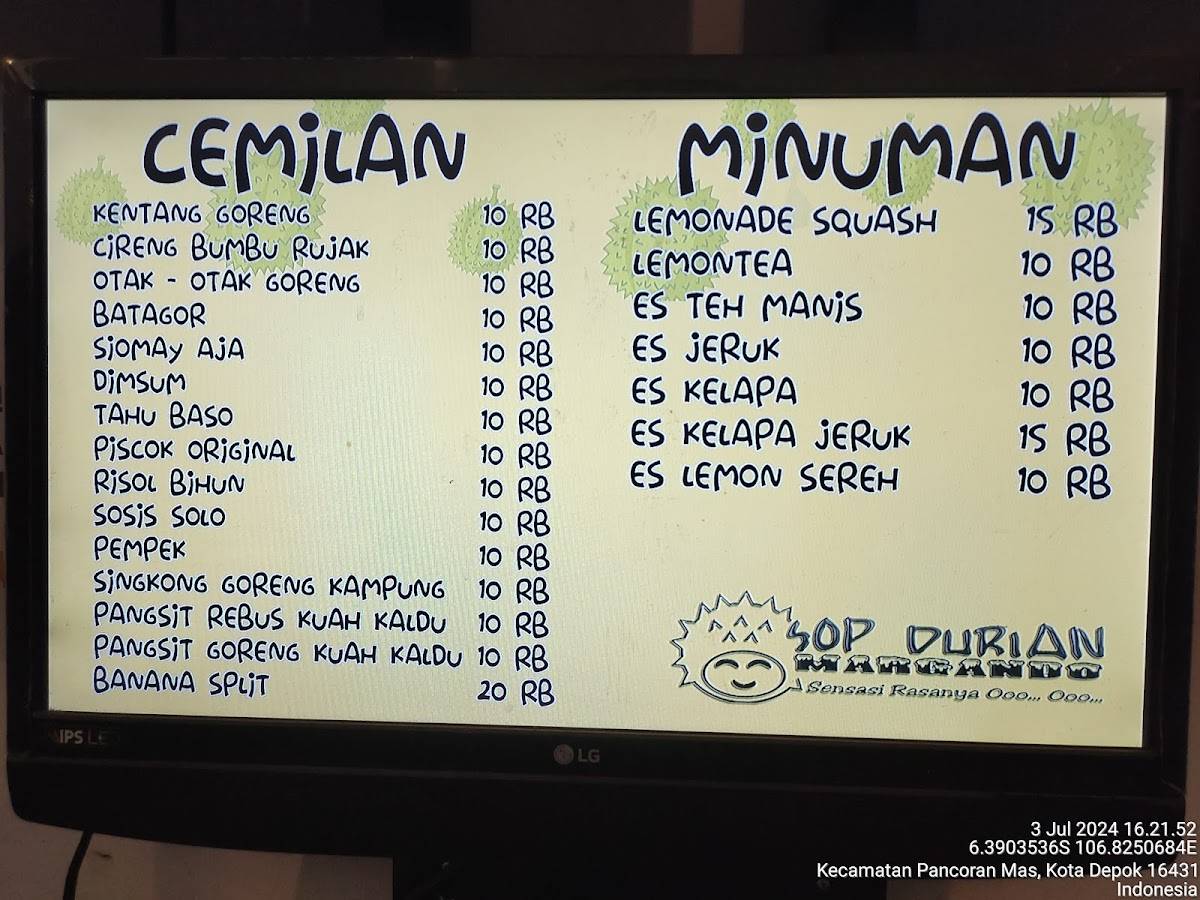 CEMILAN
KENTANG GORENG 10 RB
CIRENG BUMBU RUJAK 10 RB
OTAK - OTAK GORENG 10 RB
BATAGOR 10 RB
SIOMAY AJA 10 RB
DIMSUM 10 RB
TAHU BASO 10 RB
PISCOK ORIGINAL 10 RB
RISOL BIHUN 10 RB
SOSIS SOLO 10 RB
PEMPEK 10 RB
SINGKONG GORENG KAMPUNG 10 RB
PANGSIT REBUS KUAH KALDU 10 RB
PANGSIT GORENG KUAH KALDU 10 RB
BANANA SPLIT 20 RB
MINUMAN
LEMONADE SQUASH 15 RB
LEMONTEA 10 RB
ES TEH MANIS 10 RB
ES JERUK 10 RB
ES KELAPA 10 RB
ES KELAPA JERUK 15 RB
ES LEMON SEREH 10 RB
SOP DURIAN
MARGANDO
Sensasi Rasanya Ooo... Ooo...
IPS LED
LG
3 Jul 2024 16.21.52
6.3903536S 106.8250684E
Kecamatan Pancoran Mas, Kota Depok 16431
Indonesia